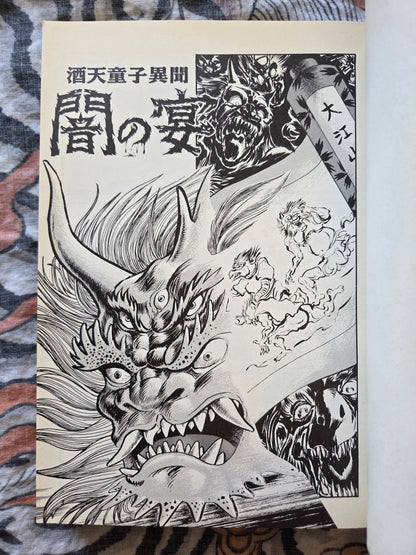 酒天童子異聞
闇の宴
大江山